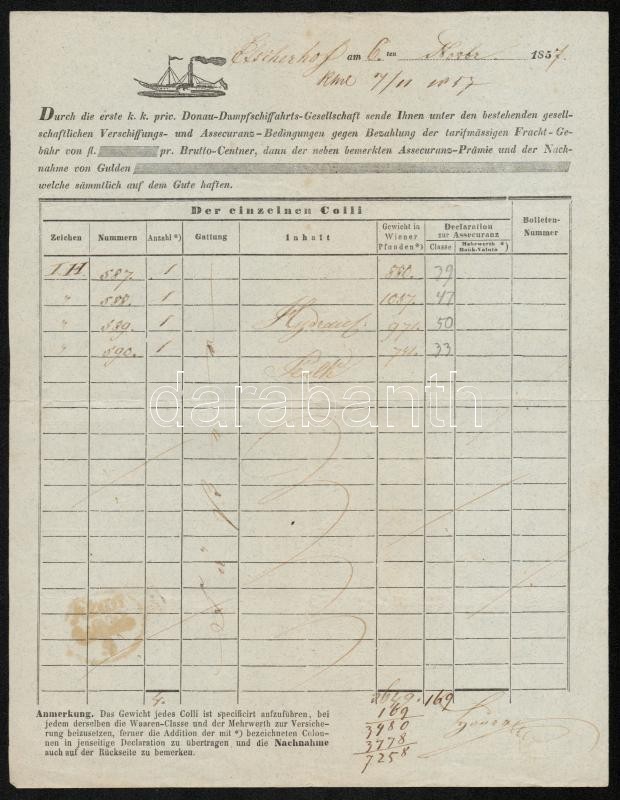 am 6. ten 1857.
7/11 1857
Durch die erste k. k. priv. Donau-Dampfschiffahrts-Gesellschaft sende Ihnen unter den bestehenden gesell-
schaftlichen Verschiffungs- und Assecuranz-Bedingungen gegen Bezahlung der tarifmässigen Fracht-Ge-
bühr von fl. pr. Brutto-Centner, dann der neben bemerkten Assecuranz-Prämie und der Nach-
nahme von Gulden
welche sämmtlich auf dem Gute haften.
Der einzelnen Colli
Bolleten-Nummer
Zeichen Nummern Anzahl *) Gattung Inhalt Gewicht in Wiener Pfunden *) Declaration zur Assecuranz
Classe Mehrwerth *) Bank-Valuta
587. 1 39
" 588. 1 1057. 47
" 589. 1 971. 50
" 590. 1 33
darabanth
4. 169
169
3480
3778
7258
Anmerkung. Das Gewicht jedes Colli ist specificirt aufzuführen, bei
jedem derselben die Waaren-Classe und der Mehrwerth zur Versiche-
rung beizusetzen, ferner die Addition der mit *) bezeichneten Colon-
nen in jenseitige Declaration zu übertragen und die Nachnahme
auch auf der Rückseite zu bemerken.